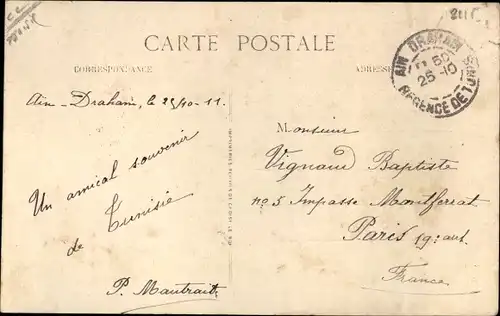 CARTE POSTALE
CORRESPONDANCE
ADRESSE
AIN DRAHAM
25-10
REGENCE DE TUNIS
Ain-Draham, le 25/10-11.
Un amical souvenir
de Tunisie
P. Mautrait
Monsieur
Vignaud Baptiste
no 5 Impasse Montferrat
Paris
France